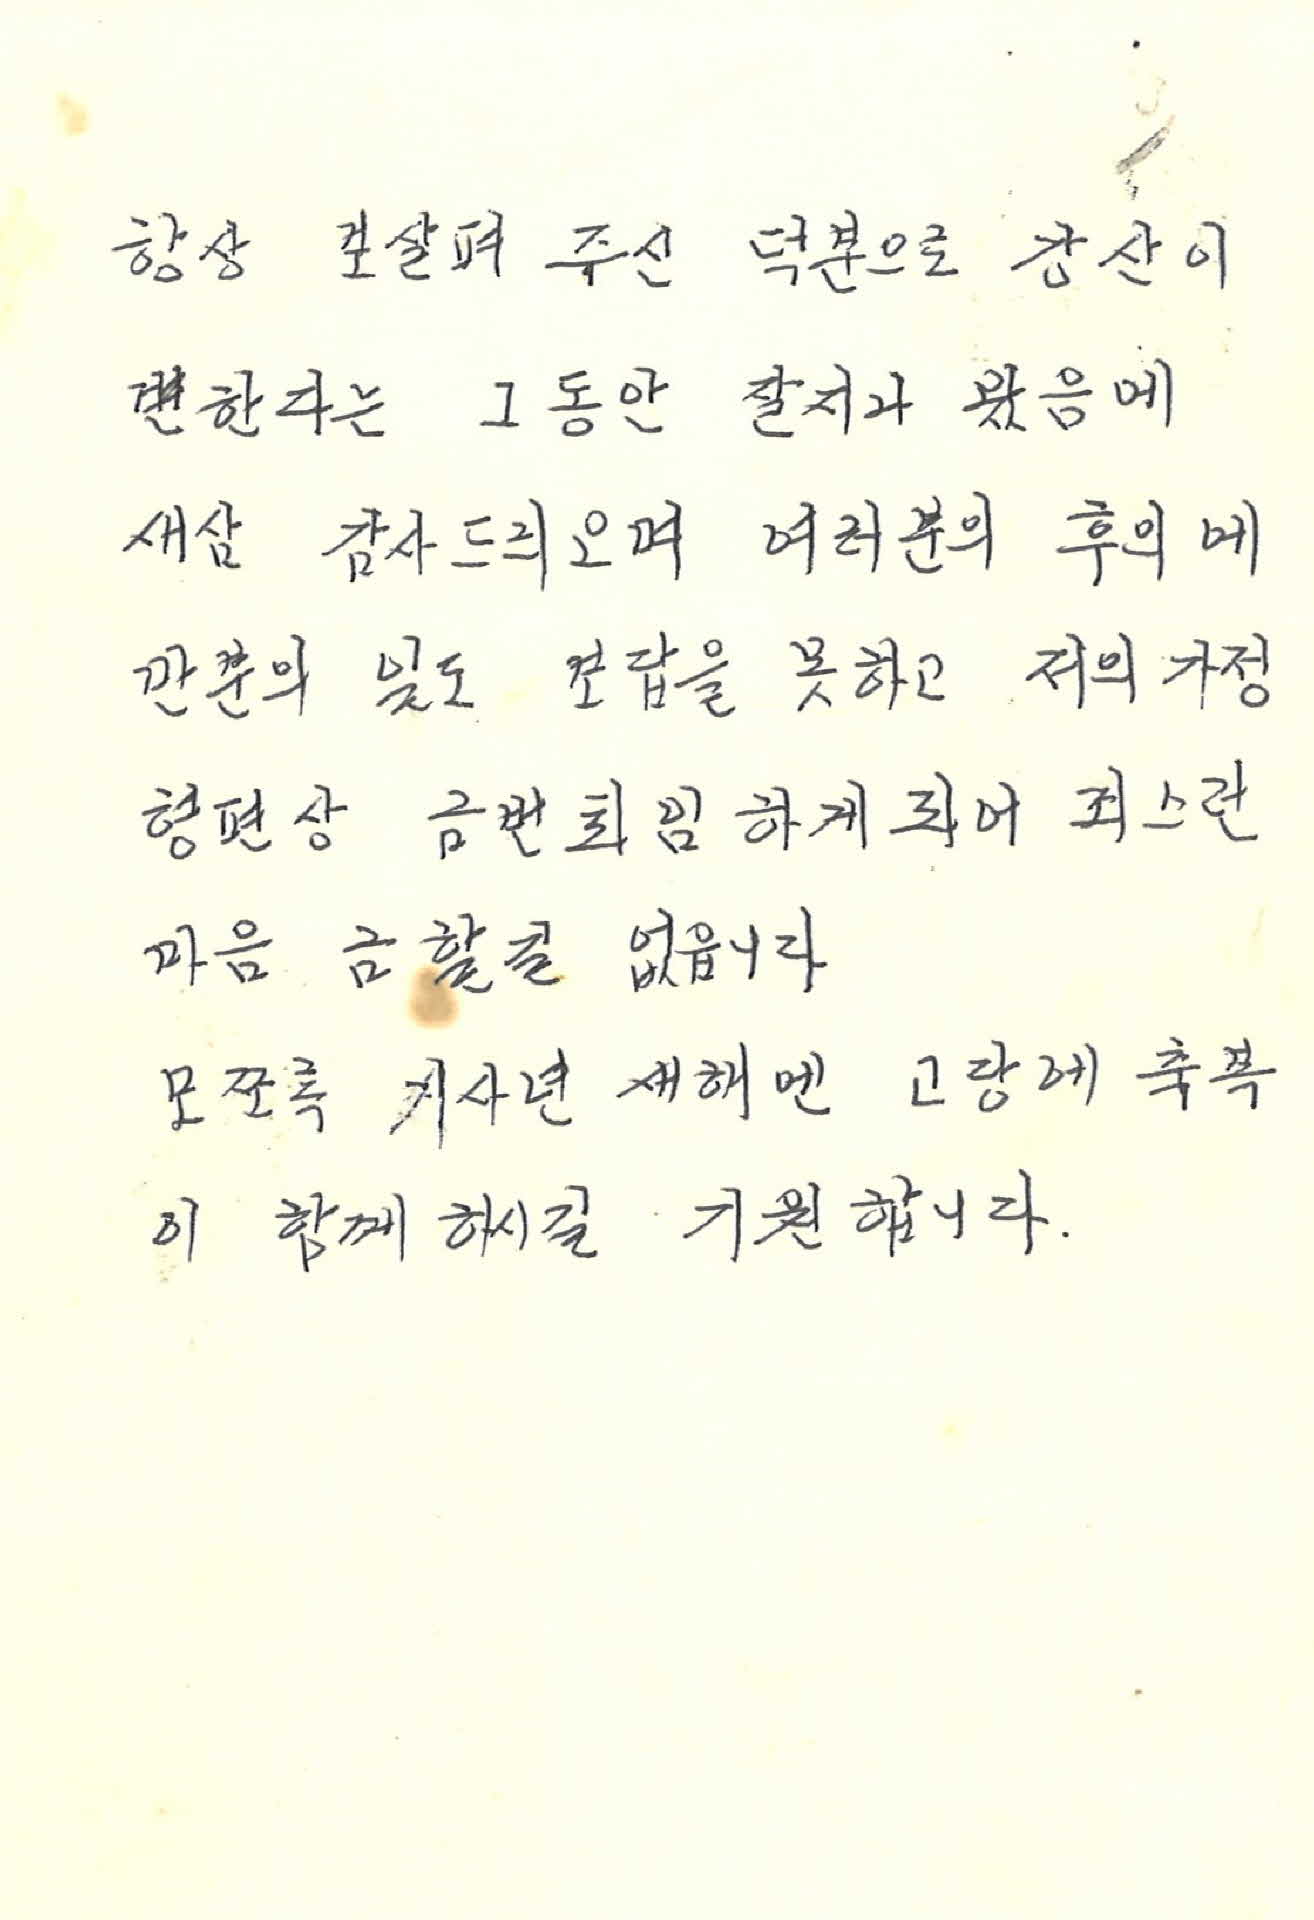 항상 보살펴 주신 덕분으로 강산이
변한다는 그동안 잘지나 왔음에
새삼 감사드리오며 여러분의 후의에
만분의 일도 보답을 못하고 저의 가정
형편상 금번퇴임하게되어 죄스런
마음 금할길 없읍니다
모쪼록 기사년 새해엔 고랑에 축복
이 함께하시길 기원합니다.